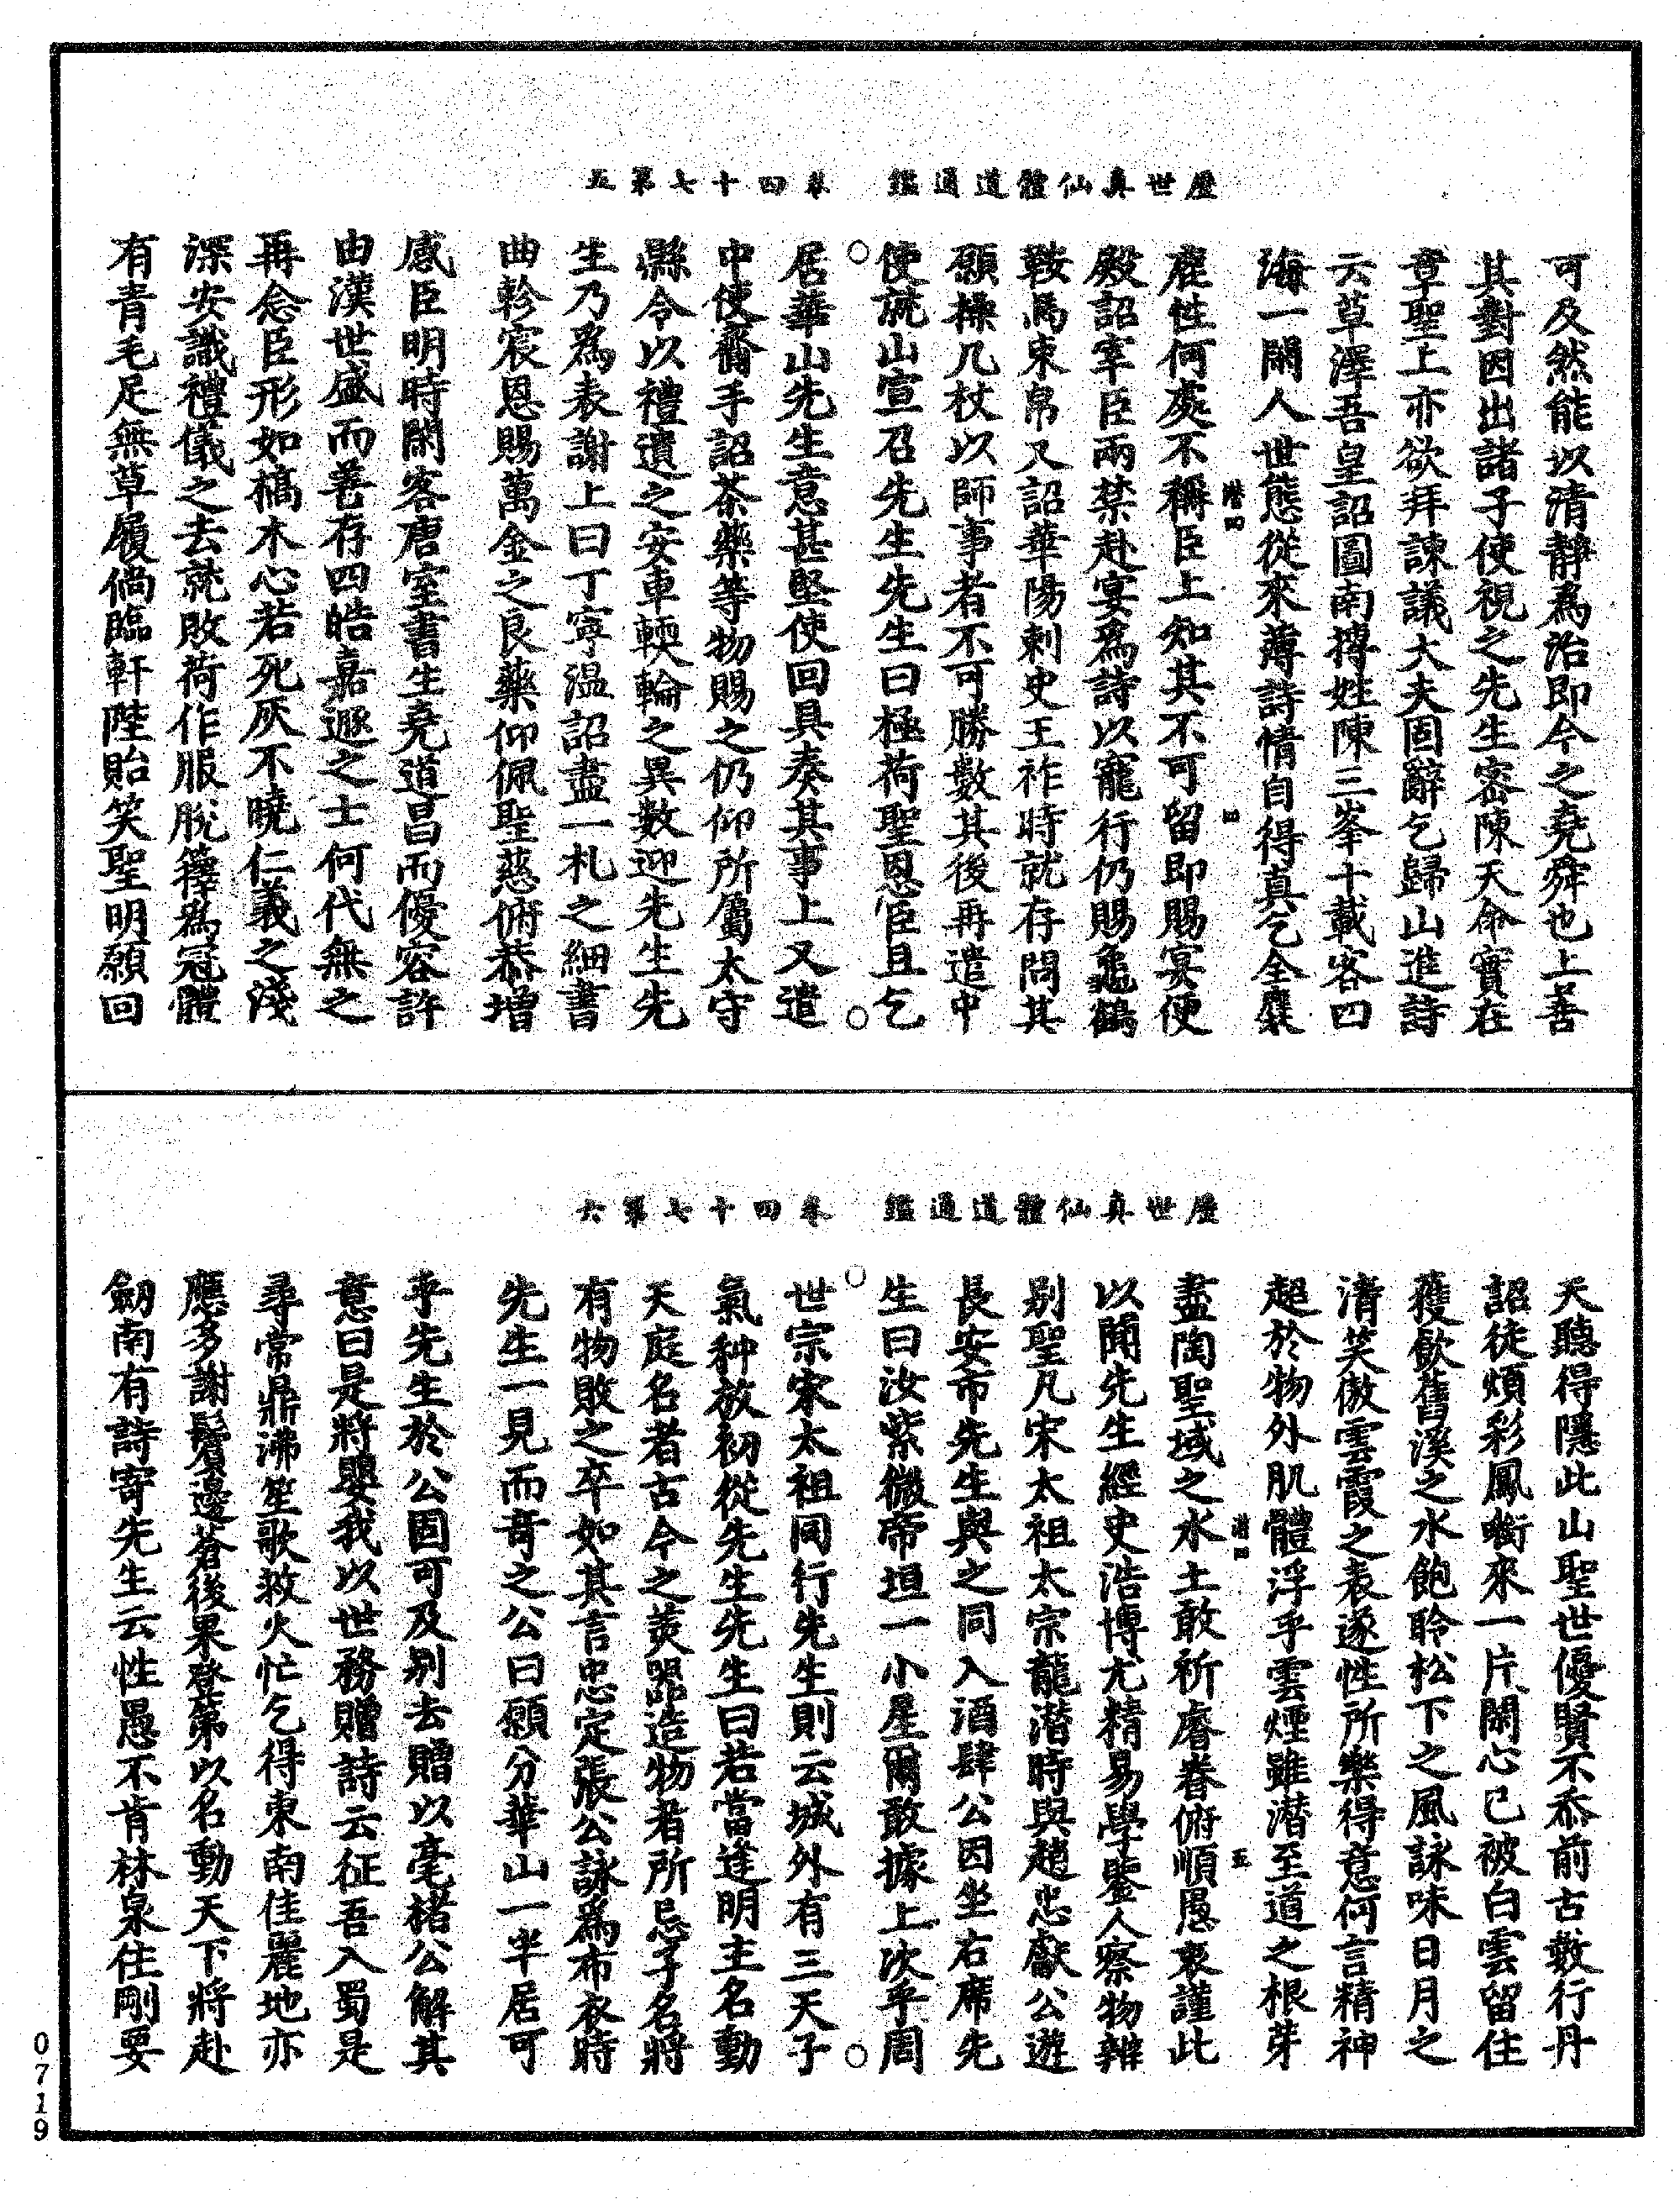 歷世真仙體道通鑑　卷四十七第五
可及然能以清靜爲治即今之堯舜也上善
其對因出諸子使視之先生密陳天命實在
章聖上亦欲拜諫議大夫固辭乞歸山進詩
云草澤吾皇詔圖南摶姓陳三峯十載客四
海一閑人世態從來薄詩情自得真乞全麋
鹿性何處不稱臣上知其不可留即賜宴便
殿詔宰臣兩禁赴宴爲詩以寵行仍賜龜鶴
鞍馬束帛又詔華陽刺史王祚時就存問其
願操几杖以師事者不可勝數其後再遣中
使就山宣召先生先生曰極荷聖恩臣且乞
居華山先生意甚堅使回具奏其事上又遣
中使齎手詔茶藥等物賜之仍仰所屬太守
縣令以禮遣之安車輭輪之異數迎先生先
生乃爲表謝上曰丁寧溫詔盡一札之細書
曲軫宸恩賜萬金之良藥仰佩聖慈俯恭增
感臣明時閑客唐室書生堯道昌而優容許
由漢世盛而善存四皓嘉遯之士何代無之
再念臣形如槁木心若死灰不曉仁義之淺
深安識禮儀之去就敗荷作服脫籜爲冠體
有青毛足無草履倘臨軒陛貽笑聖明願回
歷世真仙體道通鑑　卷四十七第六
天聽得隱此山聖世優賢不忝前古數行丹
詔徒煩彩鳳銜來一片閑心已被白雲留住
獲飲舊溪之水飽聆松下之風詠味日月之
清笑傲雲霞之表遂性所樂得意何言精神
超於物外肌體浮乎雲煙雖潛至道之根芽
盡陶聖域之水土敢祈睿眷俯順愚衷謹此
以聞先生經史浩博尤精易學鑒人察物辨
別聖凡宋太祖太宗龍潛時與趙忠獻公遊
長安市先生與之同入酒肆公因坐右席先
生曰汝紫微帝垣一小星爾敢據上次乎周
世宗宋太祖同行先生則云城外有三天子
氣种放初從先生先生曰若當逢明主名動
天庭名者古今之美器造物者所忌子名將
有物敗之卒如其言忠定張公詠爲布衣時
先生一見而奇之公曰願分華山一半居可
乎先生於公固可及別去贈以毫楮公解其
意曰是將嬰我以世務贈詩云征吾入蜀是
尋常鼎沸笙歌救火忙乞得東南佳麗地亦
應多謝鬢邊蒼後果登第以名動天下將赴
劒南有詩寄先生云性愚不肯林泉住剛要
0719